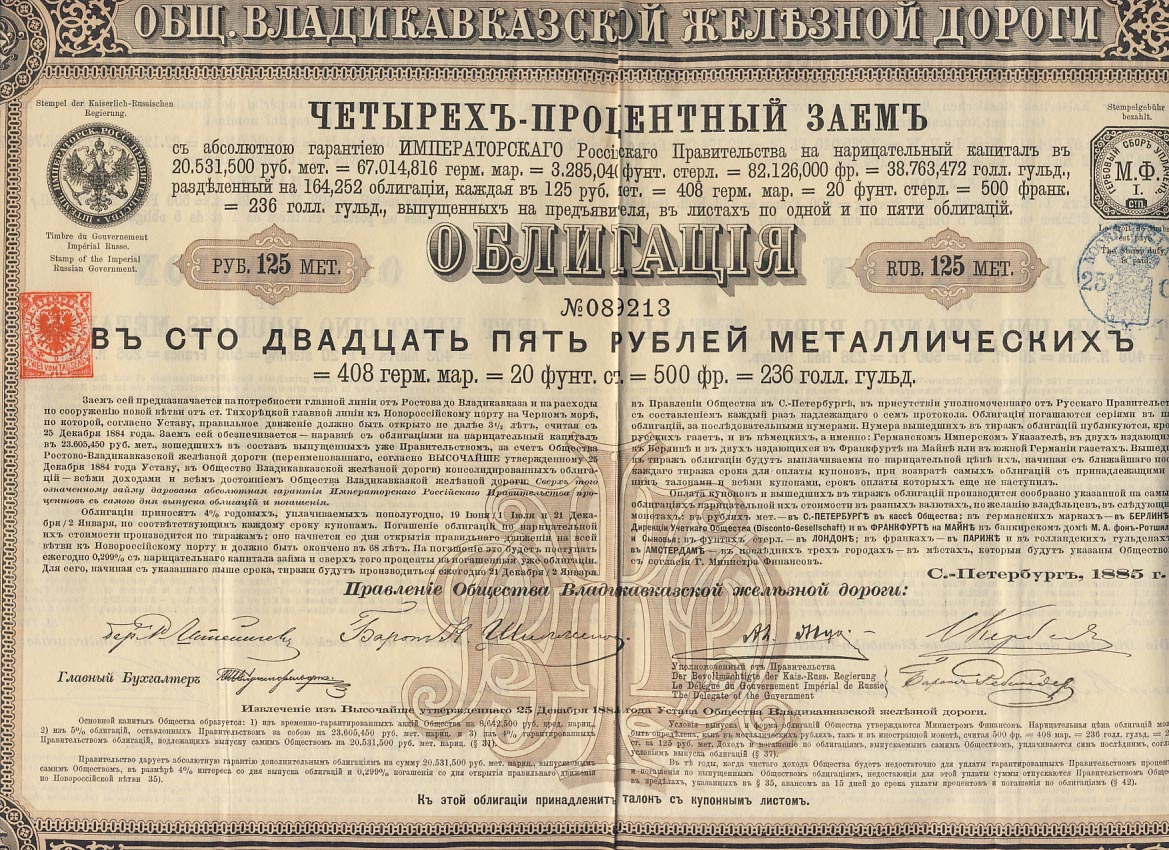 ОБЩ. ВЛАДИКАВКАЗСКОЙ ЖЕЛѢЗНОЙ ДОРОГИ
Stempel der Kaiserlich-Russischen
Regierung.
Stempelgebühr
bezahlt.
ЧЕТЫРЕХЪ-ПРОЦЕНТНЫЙ ЗАЕМЪ
съ абсолютною гарантіею ИМПЕРАТОРСКАГО Россійскаго Правительства на нарицательный капиталъ въ
20.531,500 руб. мет. = 67.014,816 герм. мар. = 3.285,040 фунт. стерл. = 82.126,000 фр. = 38.763,472 голл. гульд.,
раздѣленный на 164,252 облигаціи, каждая въ 125 руб. мет. = 408 герм. мар. = 20 фунт. стерл. = 500 франк.
= 236 голл. гульд., выпущенныхъ на предъявителя, въ листахъ по одной и по пяти облигацій.
М.Ф.
I.
СП.
Timbre du Gouvernement
Impérial Russe.
Stamp of the Imperial
Russian Government.
ОБЛИГАЦІЯ
РУБ. 125 МЕТ.
RUB. 125 МЕТ.
№089213
ВЪ СТО ДВАДЦАТЬ ПЯТЬ РУБЛЕЙ МЕТАЛЛИЧЕСКИХЪ
= 408 герм. мар. = 20 фунт. ст. = 500 фр. = 236 голл. гульд.
Заемъ сей предназначается на потребности главной линіи отъ Ростова до Владикавказа и на расходы
по сооруженію новой вѣтви отъ ст. Тихорѣцкой главной линіи къ Новороссійскому порту на Черномъ морѣ,
по которой, согласно Уставу, правильное движеніе должно быть открыто не далѣе 3½ лѣтъ, считая съ
25 Декабря 1884 года. Заемъ сей обезпечивается — наравнѣ съ облигаціями на нарицательный капиталъ
въ 23.605,450 руб. мет., вошедшихъ въ составъ выпущенныхъ уже Правительствомъ, за счетъ Общества
Ростово-Владикавказской желѣзной дороги (переименованнаго, согласно ВЫСОЧАЙШЕ утвержденному 25
Декабря 1884 года Уставу, въ Общество Владикавказской желѣзной дороги) консолидированныхъ облига-
цій — всѣми доходами и всѣмъ достояніемъ Общества Владикавказской желѣзной дороги. Сверхъ того
означенному займу дарована абсолютная гарантія Императорскаго Россійскаго Правительства про-
центовъ съ самого дня выпуска облигацій и погашенія.
Облигаціи приносятъ 4% годовыхъ, уплачиваемыхъ пополугодно, 19 Іюня/1 Іюля и 21 Дека-
бря/2 Января, по соотвѣтствующимъ каждому сроку купонамъ. Погашеніе облигацій по нарицательной
ихъ стоимости производится по тиражамъ; оно начнется со дня открытія правильнаго движенія на всей
вѣтви къ Новороссійскому порту и должно быть окончено въ 68 лѣтъ. На погашеніе это будетъ поступать
ежегодно 0,299% съ нарицательнаго капитала займа и сверхъ того проценты на погашенныя уже облигаціи.
Для сего, начиная съ указаннаго выше срока, тиражи будутъ производиться ежегодно 21 Декабря/2 Января
въ Правленіи Общества въ С.-Петербургѣ, въ присутствіи уполномоченнаго отъ Русскаго Правительс
съ составленіемъ каждый разъ надлежащаго о семъ протокола. Облигаціи погашаются серіями въ
облигацій, за послѣдовательными нумерами. Нумера вышедшихъ въ тиражъ облигацій публикуются,
газетъ, и въ нѣмецкихъ, а именно: Германскомъ Имперскомъ Указателѣ, въ двухъ издающи
въ Берлинѣ и въ двухъ издающихся въ Франкфуртѣ на Майнѣ или въ южной Германіи газетахъ.
въ тиражъ облигаціи будутъ выплачиваемы по нарицательной цѣнѣ ихъ, начиная съ ближайшаго
каждаго тиража срока для оплаты купоновъ, при возвратѣ самыхъ облигацій съ принадлежащими
нимъ талонами и всѣми купонами, срокъ оплаты которыхъ еще не наступилъ.
Оплата купоновъ и вышедшихъ въ тиражъ облигацій производится сообразно указанной на самы
облигаціяхъ нарицательной ихъ стоимости въ разныхъ валютахъ, по желанію владѣльцевъ, въ слѣдующ
монетахъ: въ рубляхъ мет. — въ С.-ПЕТЕРБУРГѢ въ кассѣ Общества; въ германскихъ маркахъ — въ БЕРЛИНѢ
Дирекціи Учетнаго Общества (Disconto-Gesellschaft) и въ ФРАНКФУРТѢ на МАЙНѢ въ банкирскомъ домѣ М. А. фонъ-Ротшил
Сыновья; въ фунтахъ стерл. — въ ЛОНДОНѢ; въ франкахъ — въ ПАРИЖѢ и въ голландскихъ гульденахъ
въ АМСТЕРДАМѢ — въ послѣднихъ трехъ городахъ — въ мѣстахъ, которыя будутъ указаны Обществом
съ согласія Г. Министра Финансовъ.
С.-Петербургъ, 1885 г.
Правленіе Общества Владикавказской желѣзной дороги:
Главный Бухгалтеръ
Уполномоченный отъ Правительства
Der Bevollmächtigte der Kais.-Russ. Regierung
Le Délégué du Gouvernement Impérial de Russie
The Delegate of the Government
Извлеченіе изъ Высочайше утвержденнаго 25 Декабря 1884 года Устава Общества Владикавказской желѣзной дороги.
Основной капиталъ Общества образуется: 1) изъ временно-гарантированныхъ акцій Общества на 8,642,500 руб. кред. нариц.,
2) изъ 5% облигацій, оставленныхъ Правительствомъ за собою на 23,605,450 руб. мет. нариц. и 3) изъ 4% гарантированныхъ
Правительствомъ облигацій, подлежащихъ выпуску самимъ Обществомъ на 20,531,500 руб. мет. нариц. (§ 31).
Правительство даруетъ абсолютную гарантію дополнительнымъ облигаціямъ на сумму 20.531,500 руб. мет. нариц., выпускаемымъ
самимъ Обществомъ, въ размѣрѣ 4% интереса со дня выпуска облигацій и 0,299% погашенія со дня открытія правильнаго движенія
по Новороссійской вѣтви (§ 35).
Условія выпуска и форма облигацій Общества утверждаются Министромъ Финансовъ. Нарицательная цѣна облигацій мо
быть опредѣлена, какъ въ металлическихъ рубляхъ, такъ и въ иностранной монетѣ, считая 500 фр. = 408 мар. = 236 голл. гульд. =
ст. за 125 руб. мет. Доходъ и погашеніе по облигаціямъ, выпускаемымъ самимъ Обществомъ, уплачиваются симъ послѣднимъ, согл
условіямъ выпуска облигацій (§ 37).
Въ тѣ годы, когда чистаго дохода Общества будетъ недостаточно для уплаты гарантированныхъ Правительствомъ процен
и погашенія по выпущеннымъ Обществомъ облигаціямъ, недостающія для этой уплаты суммы отпускаются Правительствомъ Общ
въ предѣлахъ, указанныхъ въ § 35, авансомъ за 15 дней до срока уплаты процентовъ и погашенія по облигаціямъ (§ 42).
Къ этой облигаціи принадлежитъ талонъ съ купоннымъ листомъ.